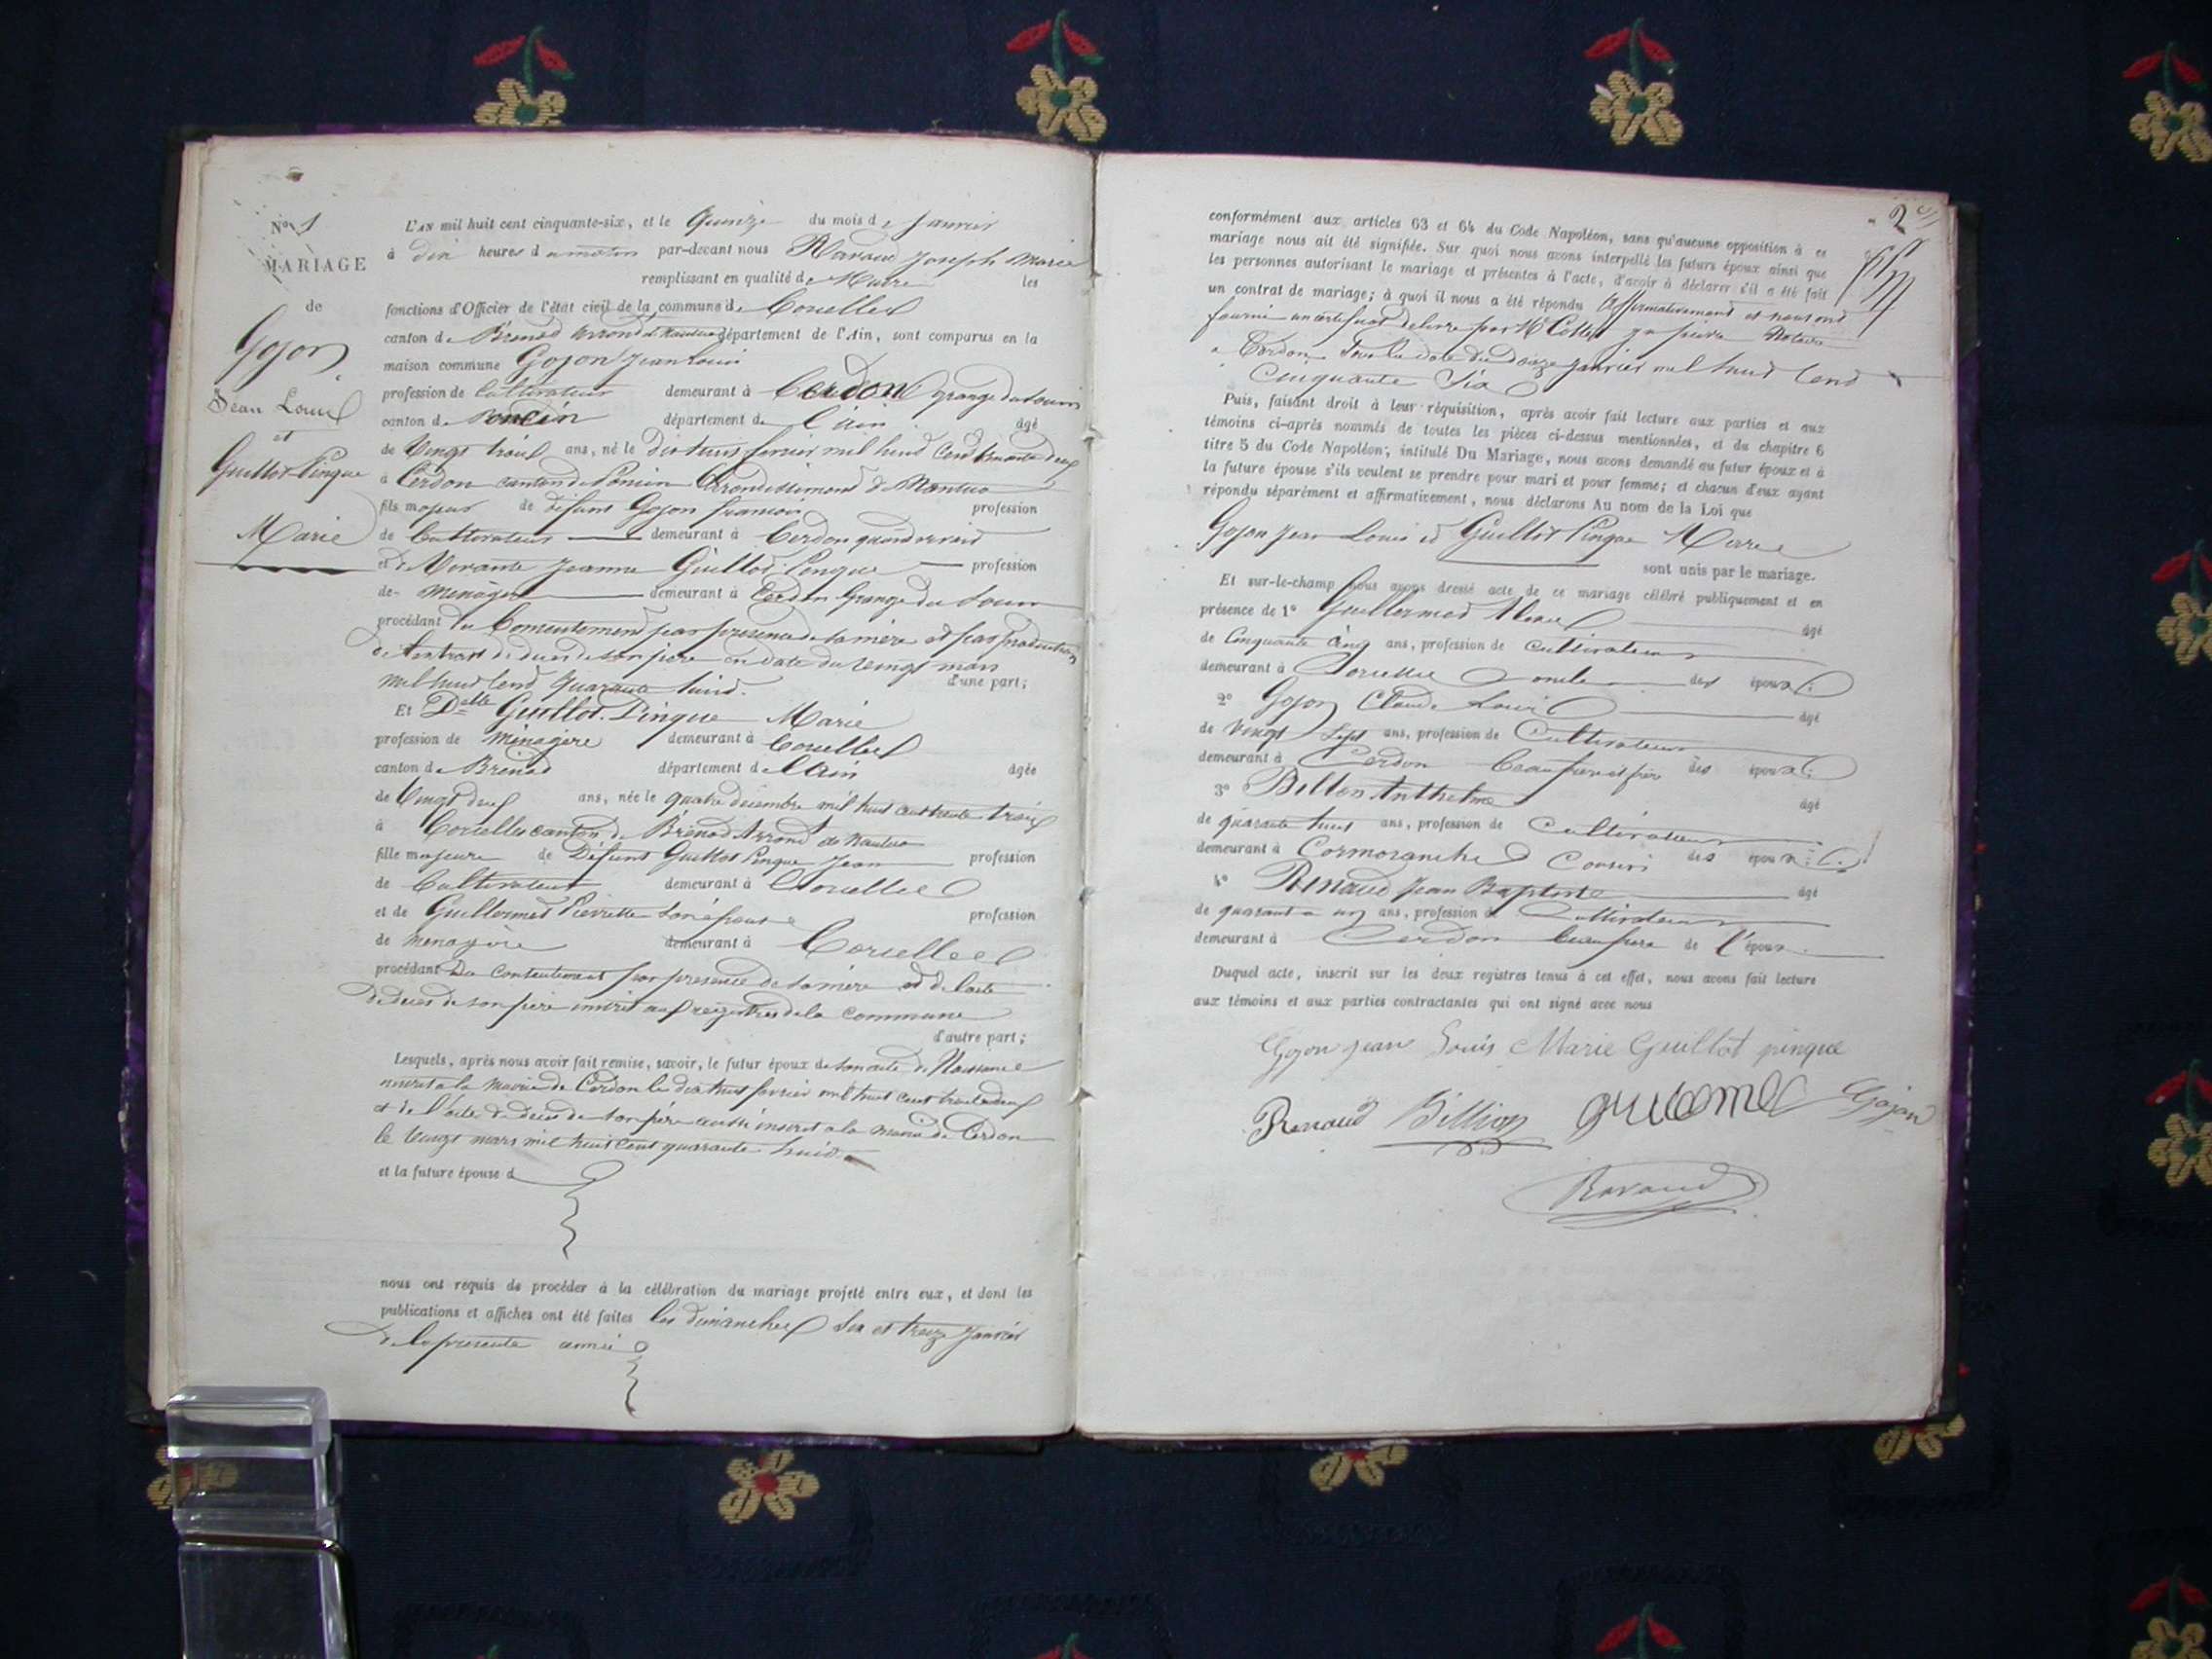 No 1
MARIAGE
de
Gojon
Jean Louis
et
Guillot Pingue
Marie
L'AN mil huit cent cinquante-six, et le Quinze du mois de Janvier
à dix heures du matin par-devant nous Ravaud Joseph Marie
remplissant en qualité de Maire les
fonctions d'Officier de l'état civil de la commune de Corcelles
canton de Brenod arrond de Nantua département de l'Ain, sont comparus en la
maison commune Gojon Jean Louis
profession de Cultivateur demeurant à Cerdon Grange du Loum
canton de Poncin département de l'ain âgé
de Vingt trois ans, né le dix huit fevrier mil huit Cent trente deux
à Cerdon canton de Poncin Arrondissement de Nantua
fils majeur de défunt Gojon francois profession
de Cultivateur demeurant à Cerdon quand vivait
et de Vivante Jeanne Guillot Pingue profession
de Menagère demeurant à Cerdon Grange du Loum
procédant du Consentement par presence de sa mère et par production
de l'extrait de décès de son père en date du vingt mars
mil huit Cent quarante huit. d'une part;
Et Delle Guillot Pingue Marie
profession de Ménagère demeurant à Corcelles
canton de Brénod département de l'Ain âgée
de Vingt deux ans, née le quatre décembre mil huit cent trente trois
à Corcelles canton de Brénod Arrond de Nantua
fille majeure de Défunt Guillot Pingue Jean profession
de Cultivateur demeurant à Corcelles
et de Guillermet Pierrette son épouse profession
de menagère demeurant à Corcelles
procédant Du Consentement par presence de sa mère et de l'acte
de décès de son père inscrit aux registres de la commune
d'autre part;
Lesquels, après nous avoir fait remise, savoir, le futur époux de son acte de Naissance
inscrit a la mairie de Cerdon le dix huit fevrier mil huit cent trente deux
et de l'acte de décès de son père aussi inscrit a la mairie de Cerdon
le Vingt mars mil huit Cent quarante huit
et la future épouse d
nous ont requis de procéder à la célébration du mariage projeté entre eux, et dont les
publications et affiches ont été faites les dimanches Six et treize Janvier
de la presente année
2
conformément aux articles 63 et 64 du Code Napoléon, sans qu'aucune opposition à ce
mariage nous ait été signifiée. Sur quoi nous avons interpellé les futurs époux ainsi que
les personnes autorisant le mariage et présentes à l'acte, d'avoir à déclarer s'il a été fait
un contrat de mariage; à quoi il nous a été répondu Affirmativement et nous ont
fourni un certificat délivré par Me Notaire
a Cerdon Sous la date du Janvier mil huit Cent
Cinquante Six
Puis, faisant droit à leur réquisition, après avoir fait lecture aux parties et aux
témoins ci-après nommés de toutes les pièces ci-dessus mentionnées, et du chapitre 6
titre 5 du Code Napoléon, intitulé Du Mariage, nous avons demandé au futur époux et à
la future épouse s'ils veulent se prendre pour mari et pour femme; et chacun d'eux ayant
répondu séparément et affirmativement, nous déclarons Au nom de la Loi que
Gojon Jean Louis et Guillot Pingue Marie
sont unis par le mariage.
Et sur-le-champ nous avons dressé acte de ce mariage célébré publiquement et en
présence de 1° Guillermet âgé
de Cinquante Cinq ans, profession de Cultivateur
demeurant à Corcelles oncle des époux
2° Gojon Claude Louis âgé
de Vingt Sept ans, profession de Cultivateur
demeurant à Cerdon Beau frere et frère des époux
3° Billion Anthelme âgé
de quarante huit ans, profession de Cultivateur
demeurant à Cormoranche Cousin des époux
4° Renaud Jean Baptiste âgé
de quarante un ans, profession de Cultivateur
demeurant à Cerdon beau frere de l'époux
Duquel acte, inscrit sur les deux registres tenus à cet effet, nous avons fait lecture
aux témoins et aux parties contractantes qui ont signé avec nous
Gojon Jean Louis Marie Guillot pingue
Renaud Billion Gojon
Ravaud